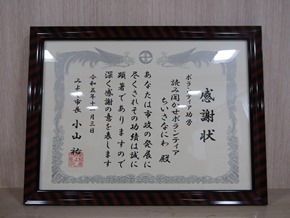 感謝状
ボランティア功労
読み聞かせボランティア
ちいさなにわ 殿
あなたは市政の発展に
尽くされその功績は誠に
顕著でありますので
深く感謝の意を表します
令和五年十一月三日
みよし市長 小山 祐